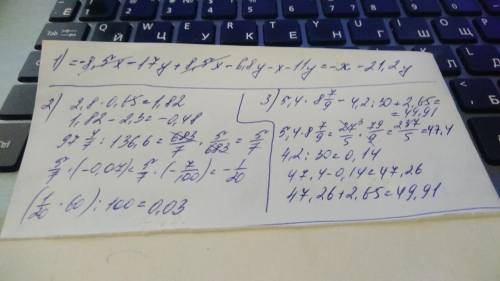 1) = -8,5x - 17y + 8,5x - 6,8y - x - 11y = -x - 21,2y
2) 2,8·0,65 = 1,82
1,82 - 2,3 = -0,48
97 4/7 : 136,6 = 683/7 · 5/683 = 5/7
5/7 · (-0,07) = 5/7 · (-7/100) = -1/20
(1/20 · 60) : 100 = 0,03
3) 5,4 · 8 7/9 - 4,2 : 30 + 2,65 =
= 49,91
5,4 · 8 7/9 = 27/5 · 79/9 = 237/5 = 47,4
4,2 : 30 = 0,14
47,4 - 0,14 = 47,26
47,26 + 2,65 = 49,91